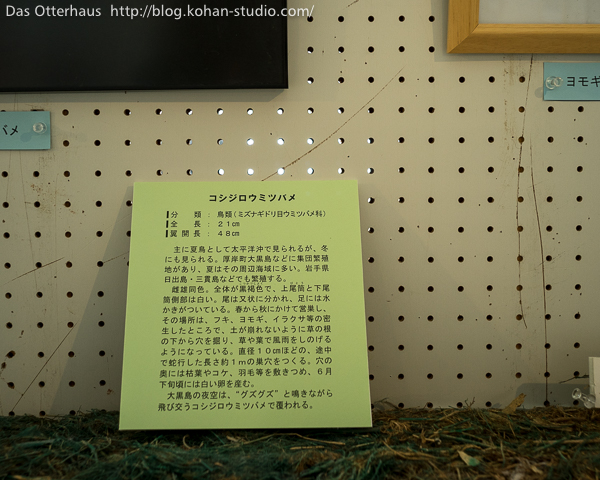 Das Otterhaus  http://blog.kohan-studio.com/
バメ
ヨモギ
コシジロウミツバメ
分　類：鳥類（ミズナギドリ目ウミツバメ科）
全　長：２１㎝
翼開長：４８㎝
主に夏鳥として太平洋沖で見られるが、冬
にも見られる。厚岸町大黒島などに集団繁殖
地があり、夏はその周辺海域に多い。岩手県
日出島・三貫島などでも繁殖する。
雌雄同色。全体が黒褐色で、上尾筒と下尾
筒側部は白い。尾は又状に分かれ、足には水
かきがついている。春から秋にかけて営巣し、
その場所は、フキ、ヨモギ、イラクサ等の密
生したところで、土が崩れないように草の根
の下から穴を掘り、草や葉で風雨をしのげる
ようになっている。直径１０㎝ほどの、途中
で蛇行した長さ約１ｍの巣穴をつくる。穴の
奥には枯葉やコケ、羽毛等を敷きつめ、６月
下旬頃には白い卵を産む。
大黒島の夜空は、“グズグズ”と鳴きながら
飛び交うコシジロウミツバメで覆われる。